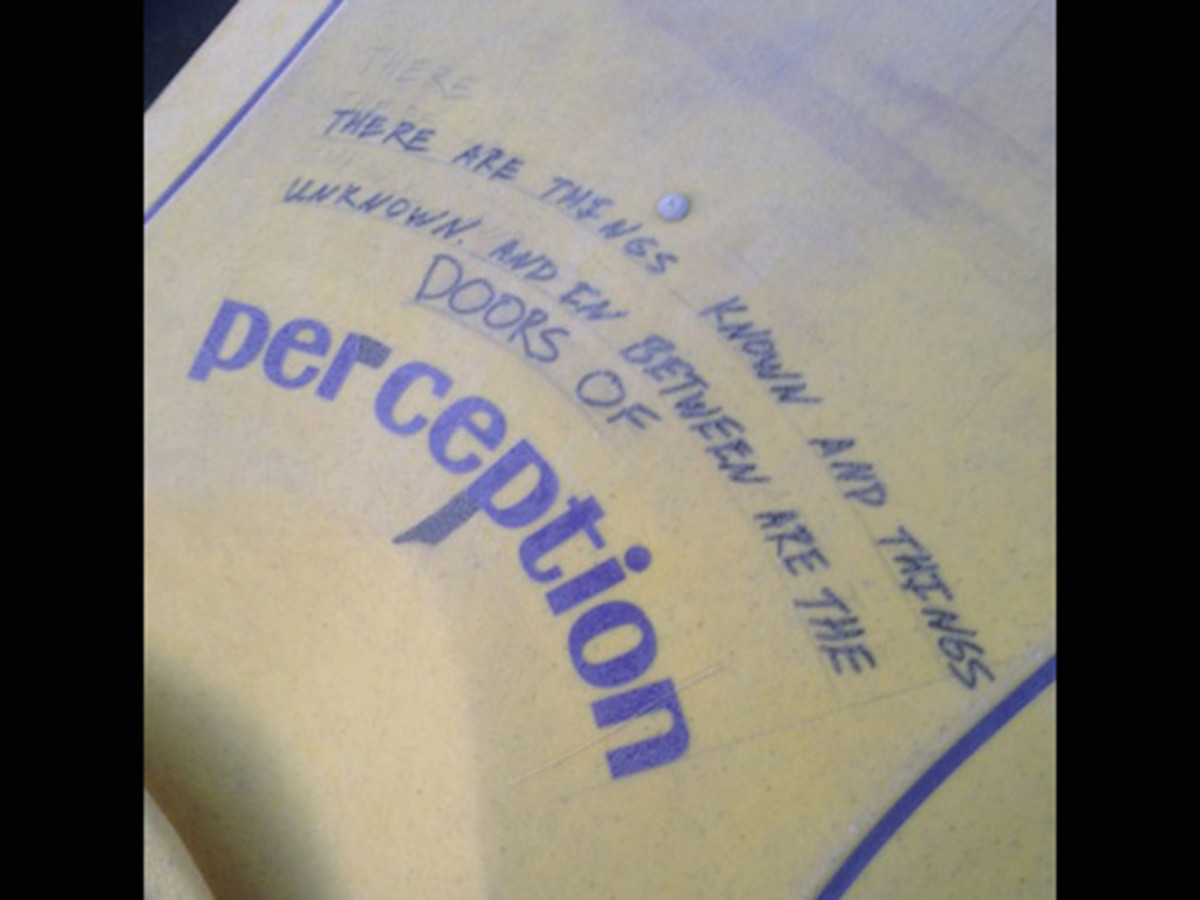 THERE
THERE ARE THINGS KNOWN AND THINGS
UNKNOWN. AND IN BETWEEN ARE THE
DOORS OF
perception